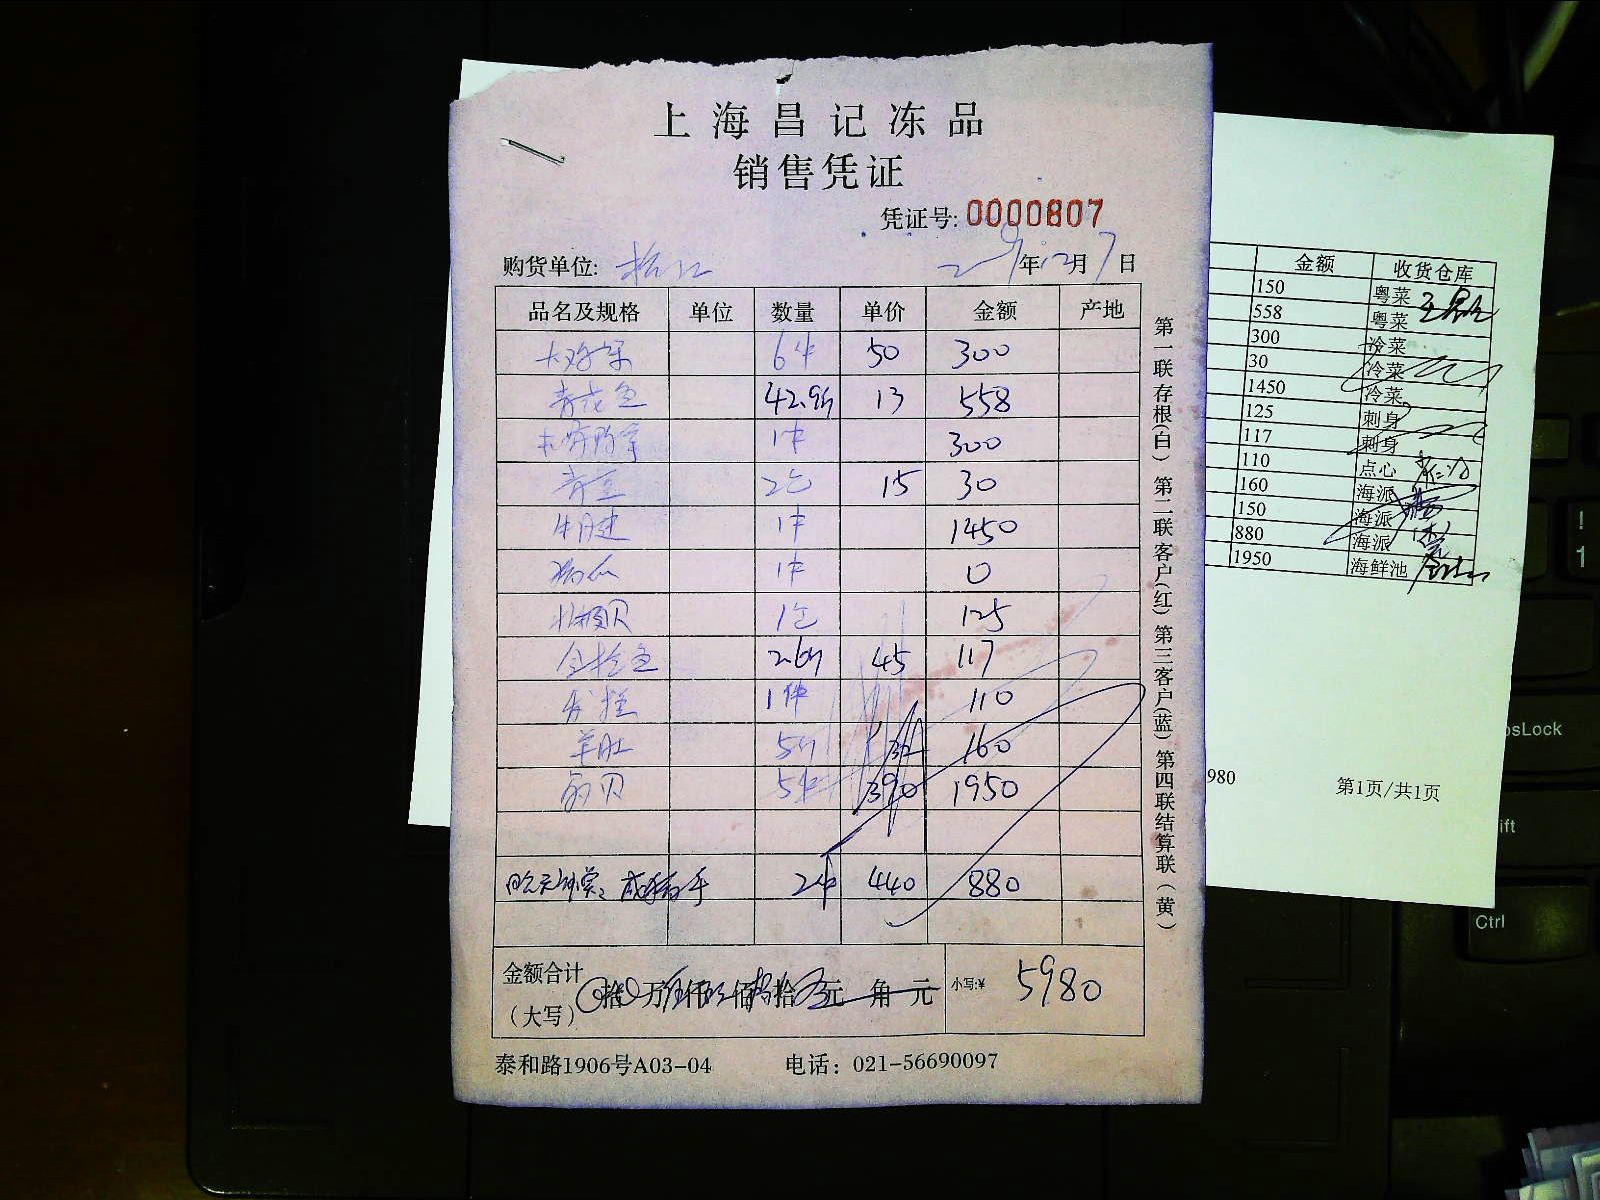 上海昌记冻品
销售凭证
凭证号: 0000807
购货单位: 松江 年12月7日
品名及规格 单位 数量 单价 金额 产地
6件 50 300
青花鱼 42.9斤 13 558
1件 300
青豆 2包 15 30
牛腱 1件 1450
1件 0
北极贝 1包 125
金枪鱼 2.6斤 45 117
1件 110
羊肚 5斤 32 160
扇贝 5件 390 1950
2件 440 880
金额合计
(大写) 拾 万 仟 佰 拾 元 角 元 小写:¥ 5980
泰和路1906号A03-04 电话: 021-56690097
第一联存根(白) 第二联客户(红) 第三客户(蓝) 第四联结算联(黄)
金额 收货仓库
150 粤菜
558 粤菜
300 冷菜
30 冷菜
1450 冷菜
125 刺身
117 刺身
110 点心
160 海派
150 海派
880 海派
1950 海鲜池
980 第1页/共1页
!
1
psLock
ift
Ctrl